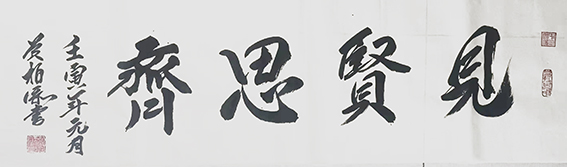 見賢思齊
壬寅年元月
柏 書